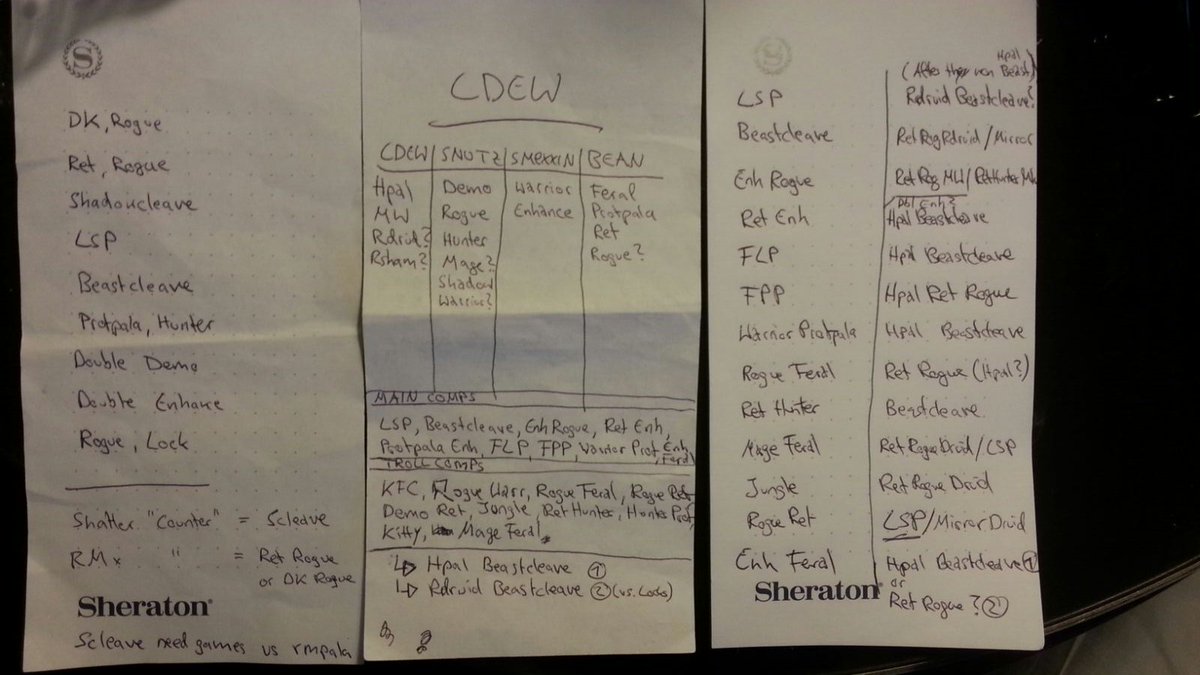 S
DK, Rogue
Ret, Rogue
Shadowcleave
LSP
Beastcleave
Protpala, Hunter
Double Demo
Double Enhance
Rogue, Lock
Shatter "Counter" = Scleave
RMx " = Ret Rogue
or DK Rogue
Sheraton
Scleave need games vs rmpala
CDEW
CDEW | SNUTZ | SMEXXIN | BEAN
Hpal Demo Warrior Feral
MW Rogue Enhance Protpala
Rdruid? Hunter Ret
Rsham? Mage? Rogue?
Shadow
Warrior?
MAIN COMPS
LSP, Beastcleave, Enh Rogue, Ret Enh,
Protpala Enh, FLP, FPP, Warrior Prot, Enh
Feral
TROLL COMPS
KFC, Rogue Warr, Rogue Feral, Rogue Ret
Demo Ret, Jungle, Ret Hunter, Hunter Prot,
Kitty, Mage Feral.
↳ Hpal Beastcleave ①
↳ Rdruid Beastcleave ② (vs. Locks)
Hpal
(After they won Beast)
LSP Rdruid Beastcleave?
Beastcleave Ret Rog Rdruid / Mirror
Enh Rogue Ret Rog MW / Ret Hunter MW
Dbl Enh?
Ret Enh Hpal Beastcleave
FLP Hpal Beastcleave
FPP Hpal Ret Rogue
Warrior Protpala Hpal Beastcleave
Rogue Feral Ret Rogue (Hpal?)
Ret Hunter Beastcleave
Mage Feral Ret Rogue Druid / LSP
Jungle Ret Rogue Druid
Rogue Ret LSP / Mirror Druid
Enh Feral Hpal Beastcleave ①
or
Sheraton Ret Rogue? ②